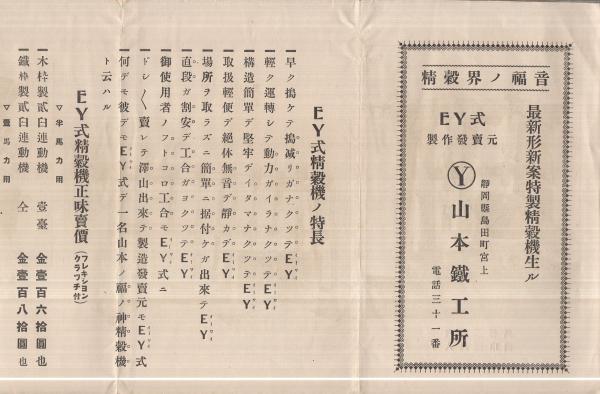 精穀界ノ福音
最新形新案特製精穀機生ル
EY式
製作發賣元
靜岡縣島田町宮上
Ⓨ山本鐵工所
電話三十一番
EY式精穀機ノ特長
一早ク搗ケテ搗減リガナクツテEY
一輕ク運轉シテ動力ガイラナクツテEY
一構造簡單デ堅牢デイタマナクツテEY
一取扱輕便デ絕体無音デ靜カデEY
一場所ヲ取ラズニ簡單ニ据付ケガ出來テEY
一直段ガ割安デ工合ガヨクツテEY
一御使用者ノフトコロ工合モEY式ニ
一ドシ〱賣レテ澤山出來テ製造發賣元モEY式
一何デモ彼デモEY式デ一名山本ノ福ノ神精穀機
ト云ハル
EY式精穀機正味賣價(フレキシヨンクラツチ付)
▽半馬力用
一木枠製貳臼連動機 壹臺 金壹百六拾圓也
▽壹馬力用
一鐵枠製貳臼連動機 仝 金壹百八拾圓也